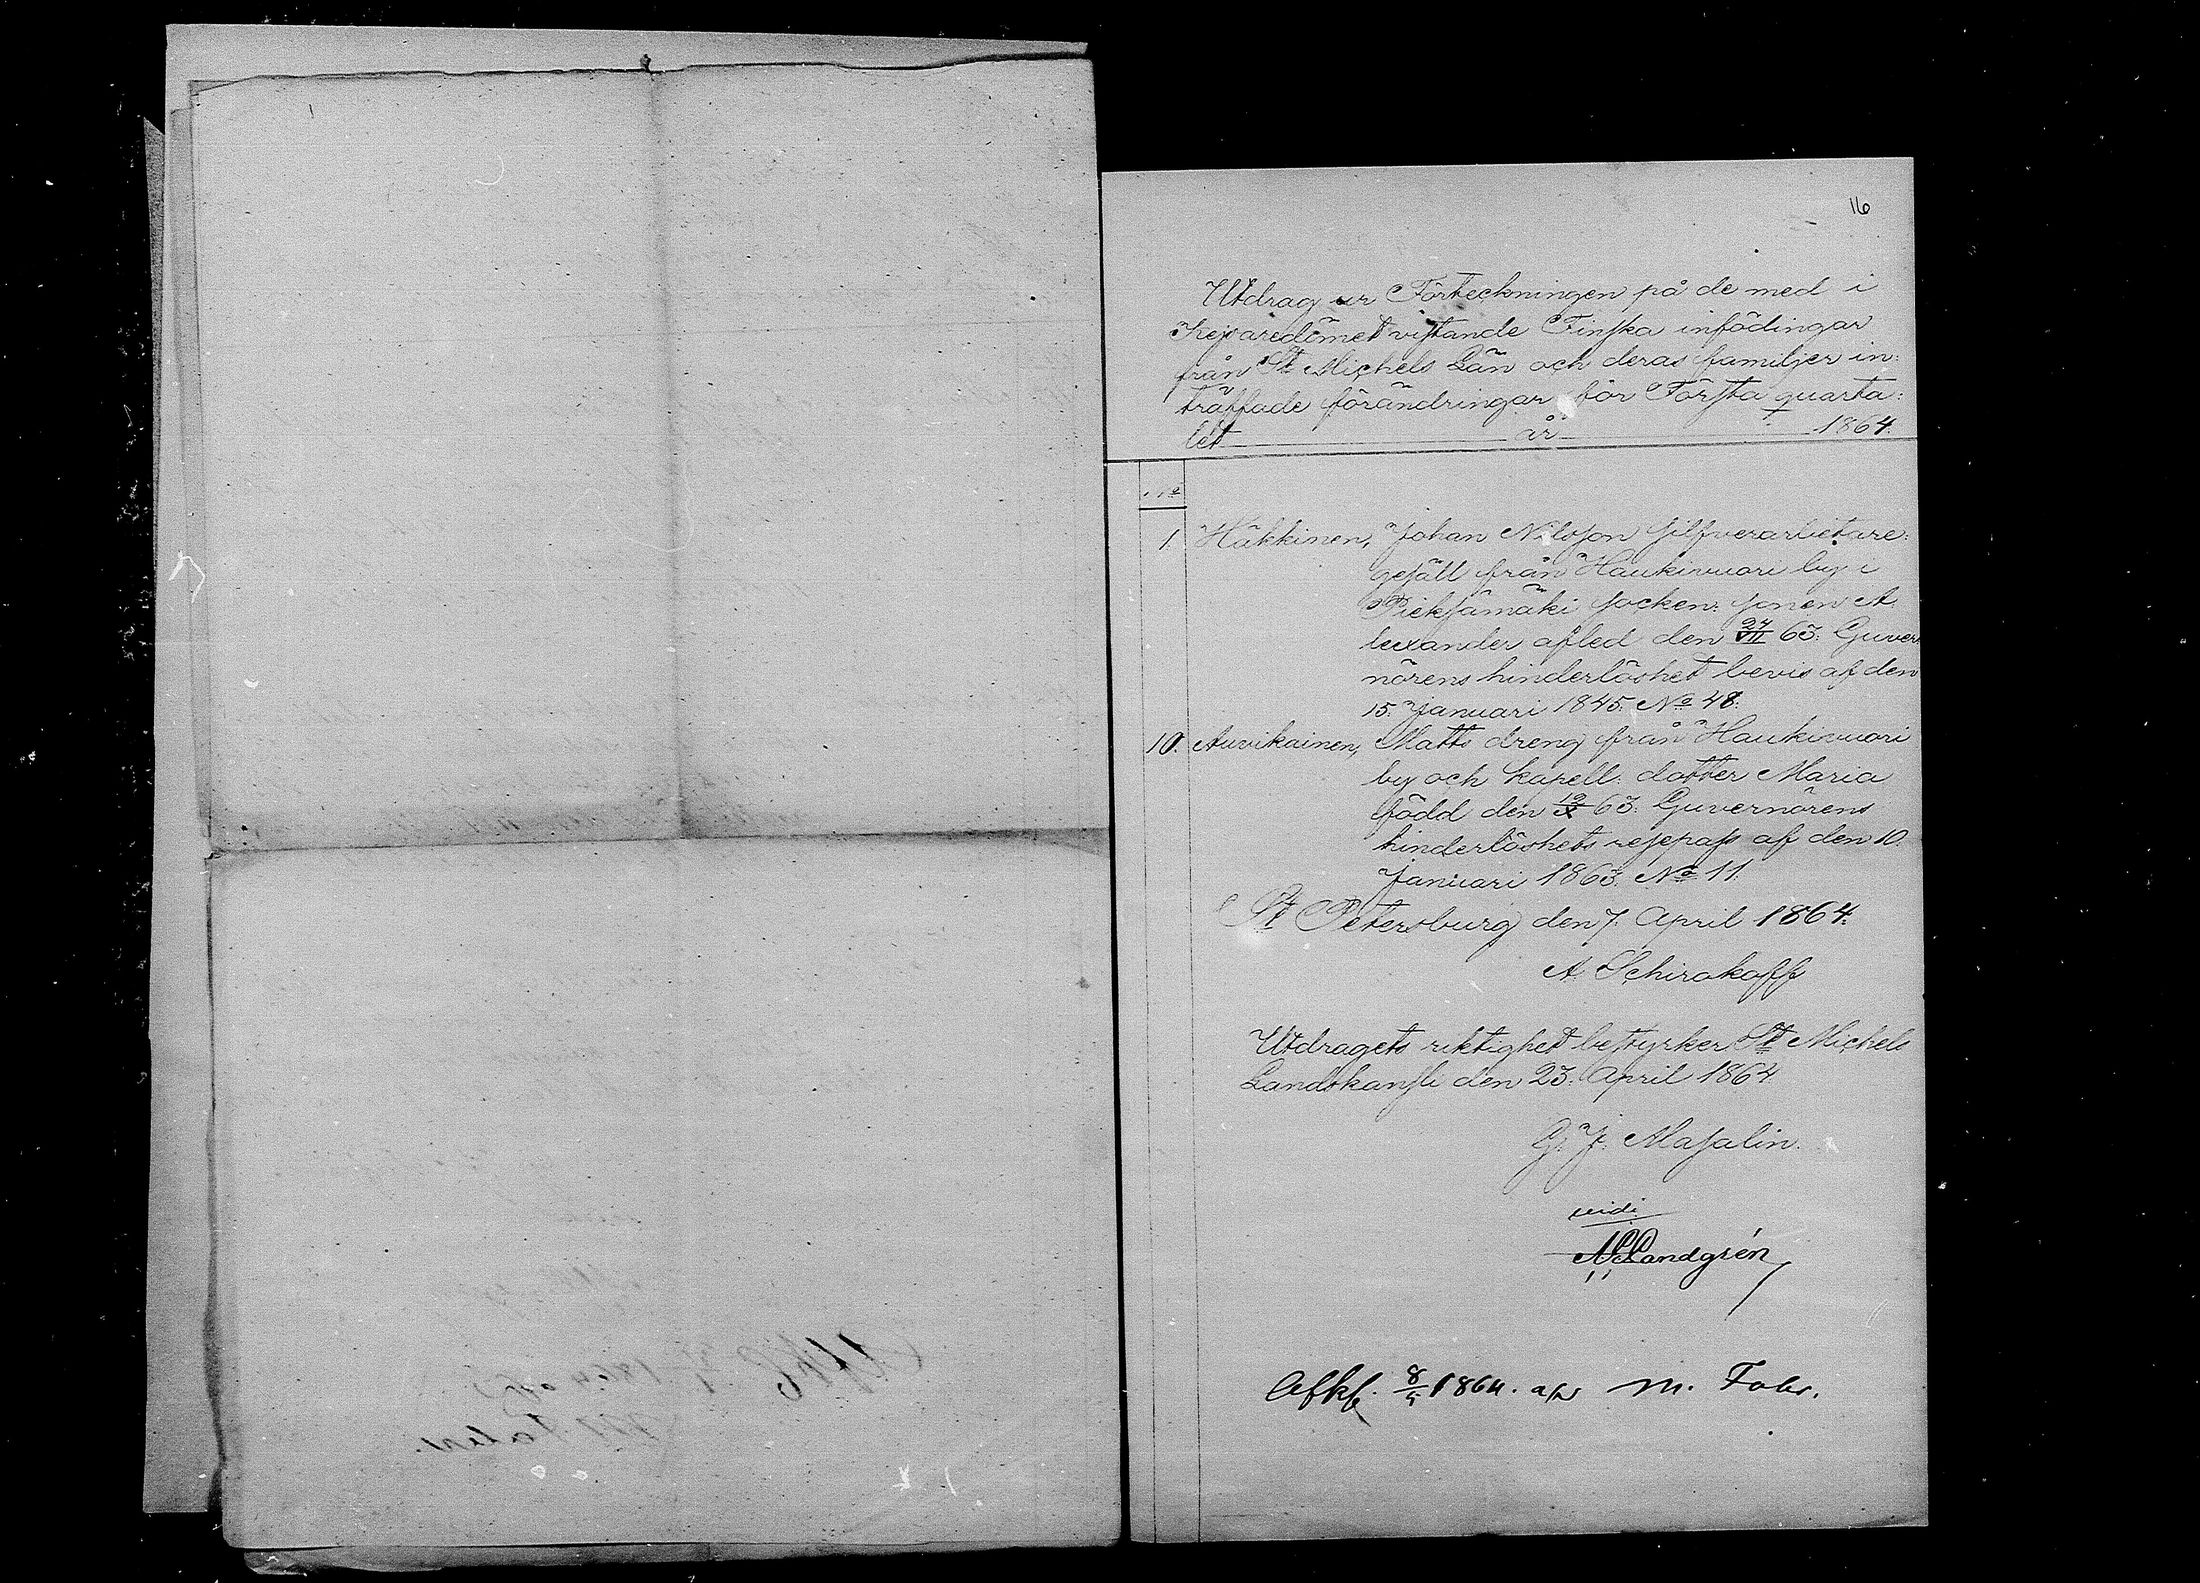 16
Utdrag ur Förteckningen på de med i
Kejsaredömet vistande Finska infödingar
från St Michels Län och deras familjer in:
träffade förändringar för Första quarta:
let år 1864.
No
1. Häkkinen, Johan Nilsson silfverarbetare:
gesäll från Haukivuori by i
Pieksämäki socken: sonen A
lexander afled den 24/VII 63: Guver
nörens hinderlöshet bevis af den
15. Januari 1845. No 48.
10. Auvikainen, Matts dreng från Haukivuori
by och kapell: dotter Maria
född den 19/X 63: Guvernörens
hinderlöshets resepass af den 10.
Januari 1863. No 11.
St Petersburg den 7. April 1864.
A. Schirakoff
Utdragets riktighet bestyrker St Michels
Landskansli den 23. April 1864.
G. J. Masalin.
vidi
Landgrén
Afkf. 8/5 1864. af M. Fabr.